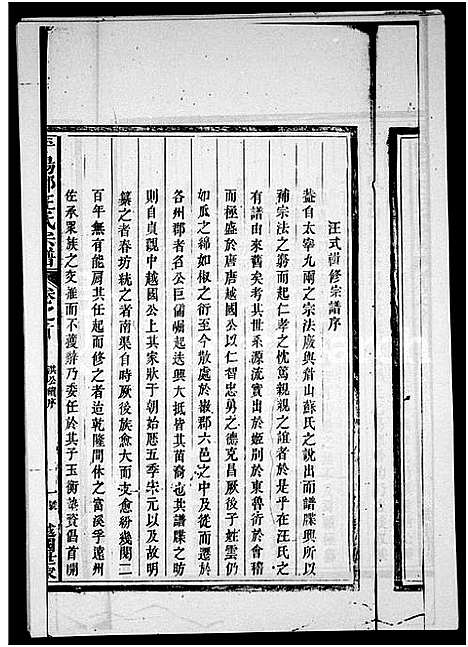 汪氏新修宗譜序
蓋自太宰九兩之宗法廢與眉山蘇氏之說出而譜牒興所以
補宗法之窮而起仁孝之忱篤親親之誼者於是乎在汪氏之
有譜由來舊矣考其世系源流實出於姬別於東魯衍於會稽
而極盛於唐唐越國公以仁智忠勇之德克昌厥後子姓雲仍
如瓜之綿如椒之衍至今散處於嶽郡六邑之中及從而遷於
各州郡者名公巨儒崛起迭興大抵皆其苗裔也其譜牒之昉
則自貞觀中越國公上其家狀于朝始歷五季宋元以及故明
纂之者春坊統之者南渠自時厥後族愈大而支愈紛幾閱二
百年無有能肩其任起而修之者迨乾隆間休之富溪孚遠州
佐承眾族之交推而不獲辭乃委任於其子玉衡葉賚倡首開
平陽郡汪氏宗譜 卷之一
洪公續序
一
越國世家